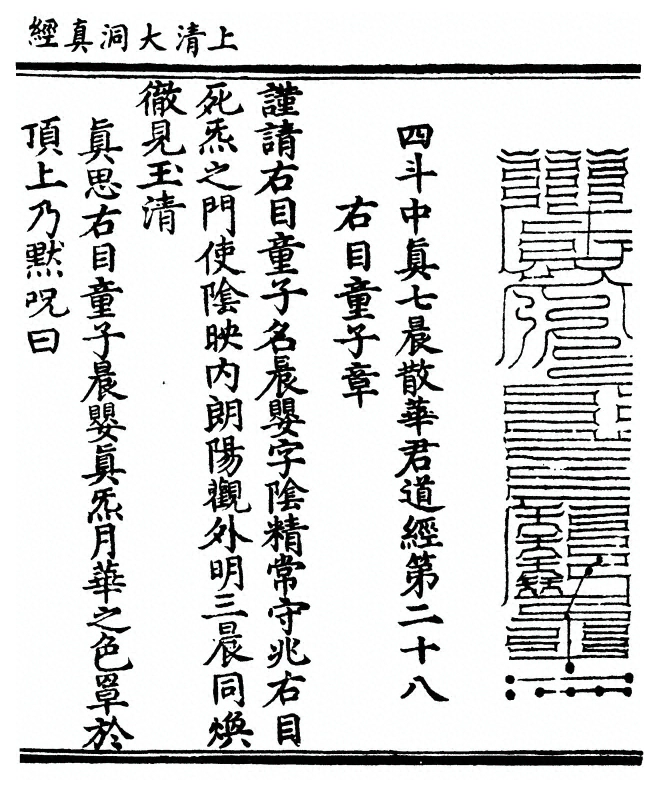 上清大洞真經
四斗中眞七晨散華君道經第二十八
右目童子章
謹請右目童子名晨嬰字陰精常守兆右目
死炁之門使陰映内朗陽觀外明三晨同煥
徹見玉清
眞思右目童子晨嬰眞炁月華之色罩於
頂上乃默呪曰